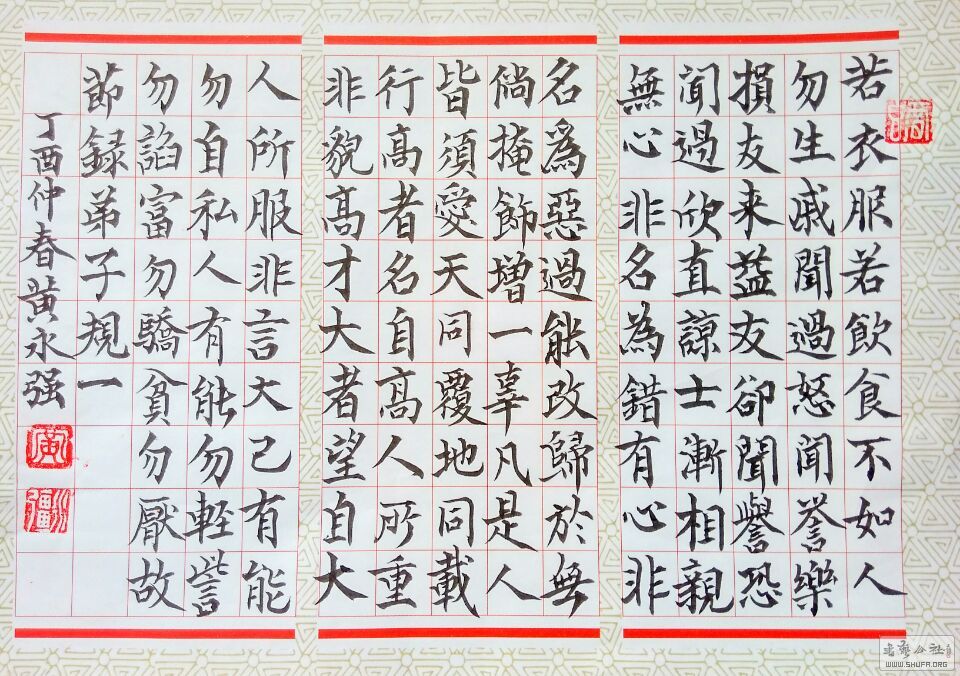 若衣服若飲食不如人
勿生戚聞過怒聞譽樂
損友来益友卻聞譽恐
聞過欣直諒士漸相親
無心非名為錯有心非
名為惡過能改歸於無
倘掩飾增一辜凡是人
皆須愛天同覆地同載
行高者名自高人所重
非貌高才大者望自大
人所服非言大己有能
勿自私人有能勿輕訾
勿諂富勿驕貧勿厭故
節録弟子規一
丁酉仲春黄永强
書藝公社
WWW.SHUFA.ORG